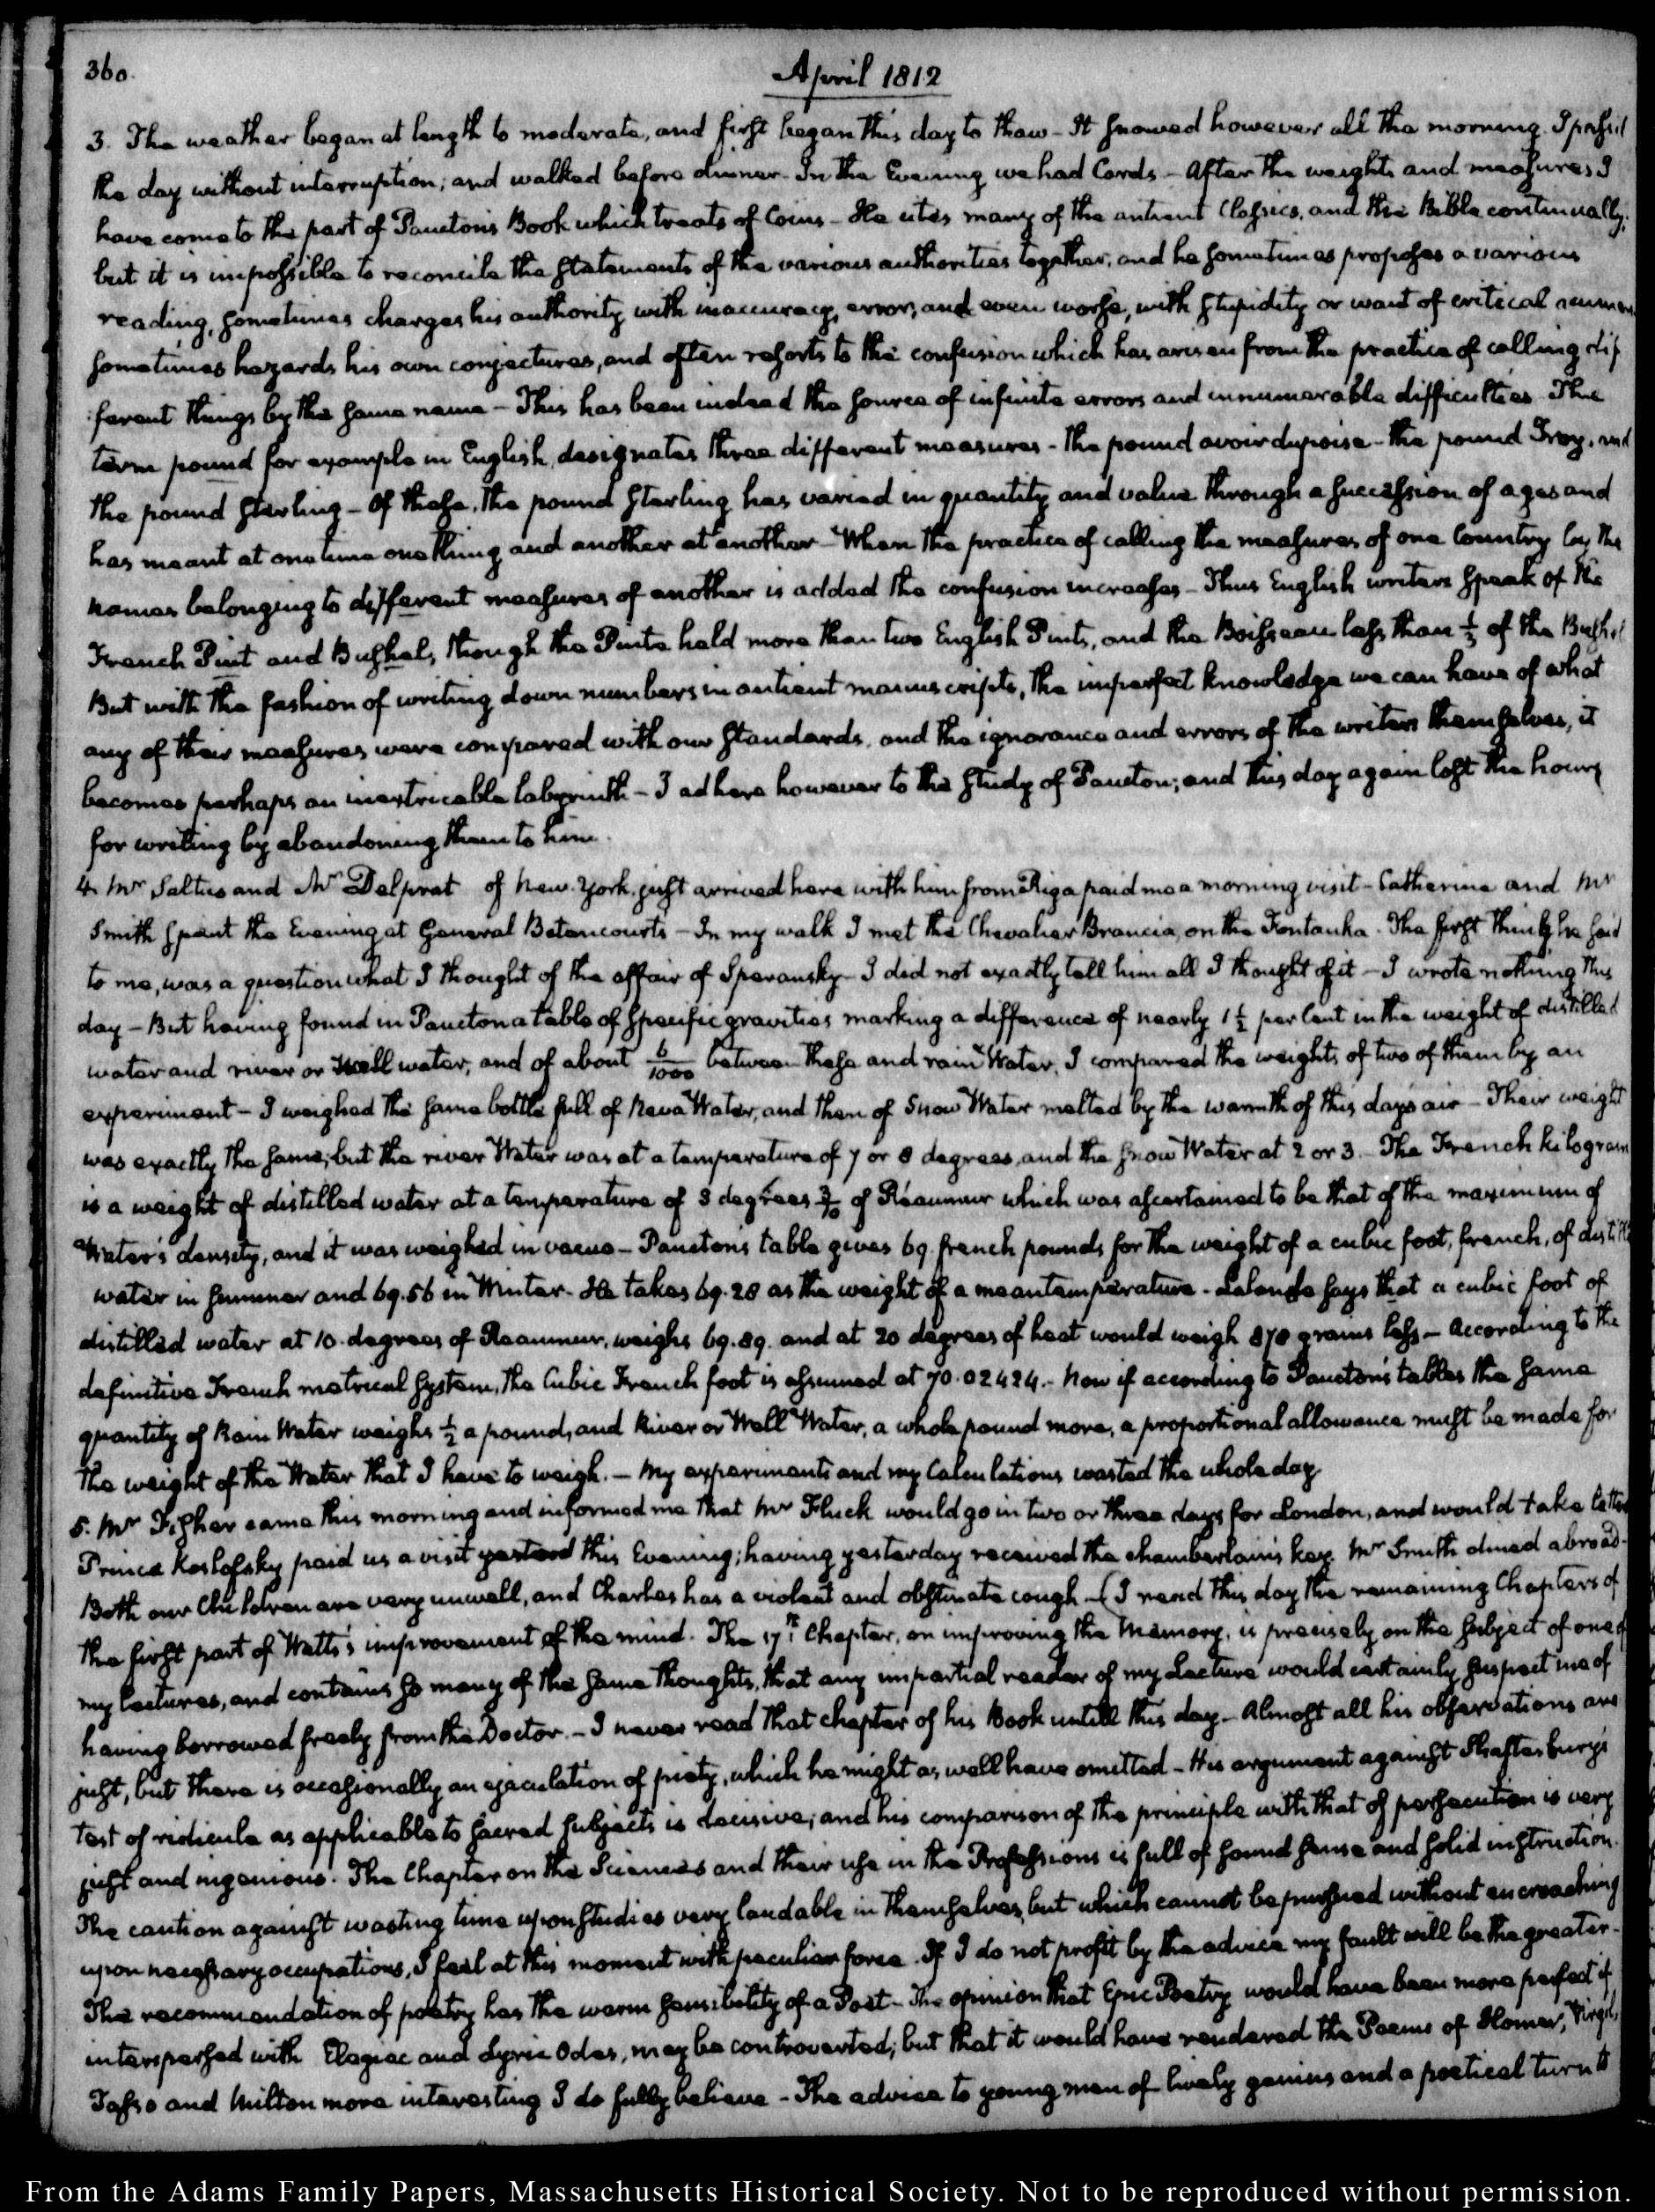 360.
April 1812
3. The weather began at length to moderate, and first began this day to thaw - It snowed however all the morning. I passed
the day without interruption; and walked before dinner - In the Evening we had Cards - After the weights and measures I
have come to the part of Paucton's Book which treats of Coins - He cites many of the antient Classics, and the Bible continually;
but it is impossible to reconcile the statements of the various authorities together, and he sometimes proposes a various
reading, sometimes charges his authority with inaccuracy, error, and even worse, with stupidity or want of critical acumen
sometimes hazards his own conjectures, and often resorts to the confusion which has arisen from the practice of calling dif
ferent things by the same name - This has been indeed the source of infinite errors and innumerable difficulties. The
term pound for example in English, designates three different measures - the pound avoirdupoise - the pound Troy, and
the pound sterling - Of these, the pound sterling has varied in quantity and value through a succession of ages and
has meant at one time one thing and another at another - When the practice of calling the measures of one Country by the
names belonging to different measures of another is added the confusion increases - Thus English writers speak of the
French Pint and Bushel, though the Pinte held more than two English Pints, and the Boisseau less than 1/2 of the Bushel
But with the fashion of writing down numbers in antient manuscripts, the imperfect knowledge we can have of what
any of their measures were compared with our standards, and the ignorance and errors of the writers themselves, it
becomes perhaps an inextricable labyrinth - I adhere however to the study of Paucton; and this day again lost the hours
for writing by abandoning them to him.
4. Mr Saltus and Mr Delprat of New-York, just arrived here with him from Riga paid me a morning visit - Catherine and Mr
Smith spent the Evening at General Betancourt's - In my walk I met the Chevalier Brancia, on the Fontanka. The first thing he said
to me, was a question what I thought of the affair of Speransky - I did not exactly tell him all I thought of it - I wrote nothing this
day - But having found in Paucton a table of specific gravities marking a difference of nearly 1 1/2 per Cent in the weight of distilled
water and river or Well water, and of about 6/1000 between these and rain Water, I compared the weights of two of them by an
experiment - I weighed the same bottle full of Neva Water, and then of Snow Water melted by the warmth of this day's air - Their weight
was exactly the same; but the river Water was at a temperature of 7 or 8 degrees, and the snow Water at 2 or 3. - The French kilogram
is a weight of distilled water at a temperature of 3 degrees 3/10 of Réaumur which was ascertained to be that of the maximum of
Water's density, and it was weighed in vacuo - Paucton's table gives 69 french pounds for the weight of a cubic foot, french, of distill
water in summer and 69.56 in Winter. He takes 69.28 as the weight of a mean temperature - Lalande says that a cubic foot of
distilled water at 10 degrees of Reaumur, weighs 69.89. and at 20 degrees of heat would weigh 878 grains less - According to the
definitive French metrical system, the Cubic French foot is assumed at 70.02424. - Now if according to Paucton's tables the same
quantity of Rain Water weighs 1/2 a pound, and River or Well Water, a whole pound more, a proportional allowance must be made for
the weight of the Water that I have to weigh. - My experiments and my Calculations wasted the whole day.
5. Mr Fisher came this morning and informed me that Mr Fluck would go in two or three days for London, and would take letters
Prince Koslofsky paid us a visit yesterd this Evening; having yesterday received the chamberlain's key. Mr Smith dined abroad -
Both our Children are very unwell, and Charles has a violent and obstinate cough - (I read this day the remaining Chapters of
the first part of Watts's improvement of the mind. The 17th Chapter, on improving the Memory, is precisely on the subject of one of
my lectures, and contains so many of the same thoughts, that any impartial reader of my Lecture would certainly suspect me of
having borrowed freely from the Doctor. - I never read that chapter of his Book untill this day - Almost all his observations are
just, but there is occasionally an ejaculation of piety, which he might as well have omitted - His argument against Shaftesbury's
test of ridicule as applicable to sacred subjects is decisive; and his comparison of the principle with that of persecution is very
just and ingenious. The Chapter on the Sciences and their use in the Professions is full of sound sense and solid instruction.
The caution against wasting time upon studies very laudable in themselves, but which cannot be pursued without encroaching
upon necessary occupations, I feel at this moment with peculiar force. If I do not profit by the advice my fault will be the greater -
The recommendation of poetry has the warm sensibility of a Poet - The opinion that Epic Poetry would have been more perfect if
interspersed with Elegiac and Lyric Odes, may be controverted; but that it would have rendered the Poems of Homer, Virgil,
Tasso and Milton more interesting I do fully believe - The advice to young men of lively genius and a poetical turn to
From the Adams Family Papers, Massachusetts Historical Society. Not to be reproduced without permission.